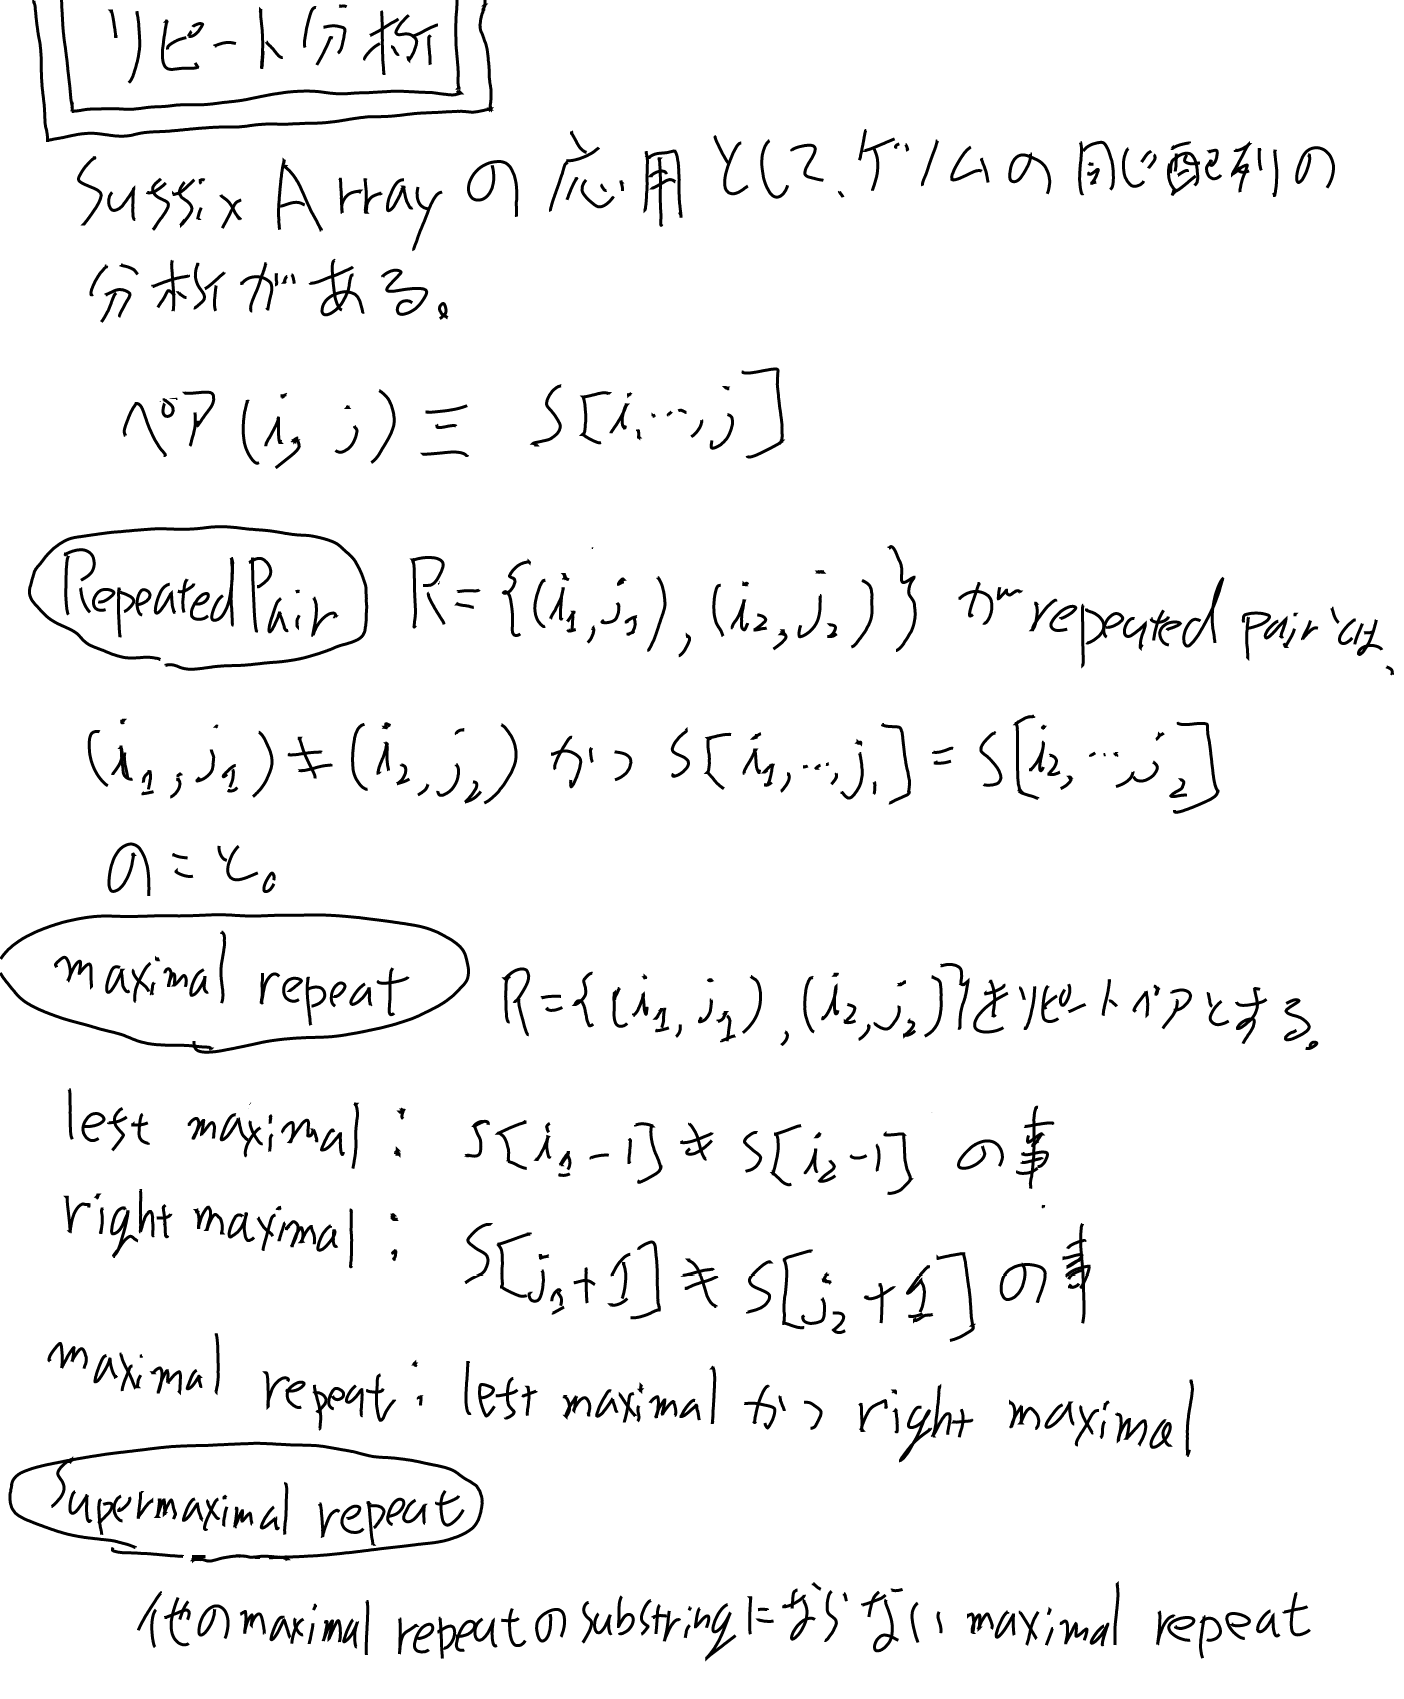 リピート分析
Suffix Arrayの応用として、ゲノムの同じ配列の
分析がある。
ペア(i, j) ≡ S[i,…,j]
Repeated Pair R={(i₁,j₁),(i₂,j₂)} が repeated pairとは、
(i₁,j₁)≠(i₂,j₂) かつ S[i₁,…,j₁]=S[i₂,…,j₂]
のこと。
maximal repeat R={(i₁,j₁),(i₂,j₂)}をリピートペアとする。
left maximal: S[i₁-1]≠S[i₂-1] の事
right maximal: S[j₁+1]≠S[j₂+1] の事
maximal repeat: left maximal かつ right maximal
Supermaximal repeat
他のmaximal repeatのsubstringにならない maximal repeat